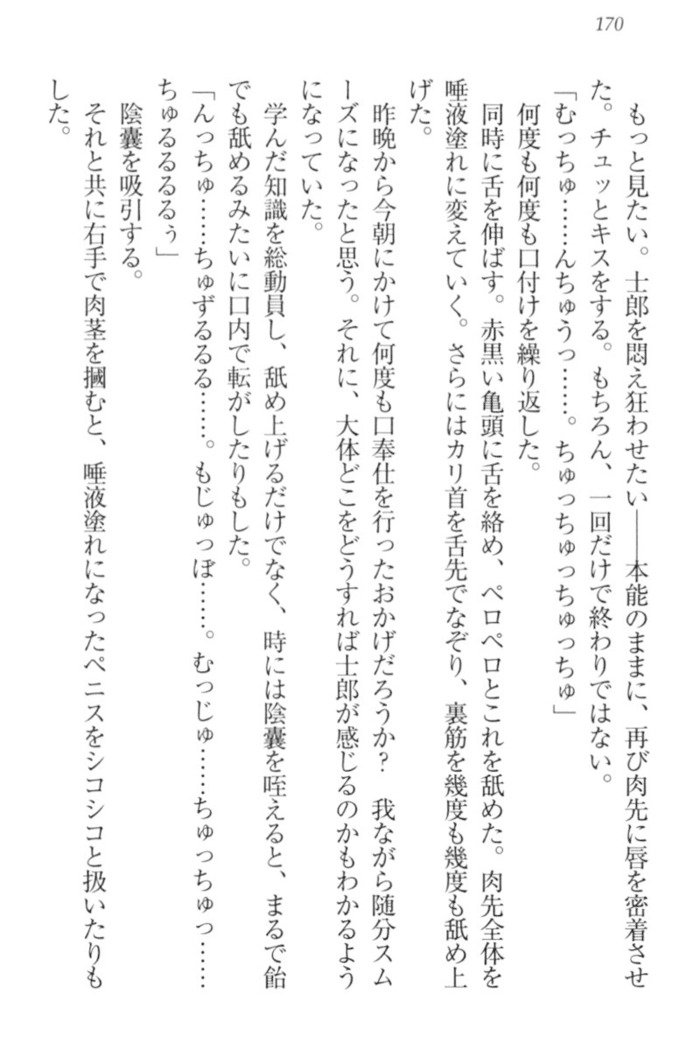 170
もっと見たい。士郎を悶え狂わせたい――本能のままに、再び肉先に唇を密着させ
た。チュッとキスをする。もちろん、一回だけで終わりではない。
「むっちゅ……んちゅうっ……。ちゅっちゅっちゅっちゅ」
何度も何度も口付けを繰り返した。
同時に舌を伸ばす。赤黒い亀頭に舌を絡め、ペロペロとこれを舐めた。肉先全体を
唾液塗れに変えていく。さらにはカリ首を舌先でなぞり、裏筋を幾度も幾度も舐め上
げた。
昨晩から今朝にかけて何度も口奉仕を行ったおかげだろうか？　我ながら随分スム
ーズになったと思う。それに、大体どこをどうすれば士郎が感じるのかもわかるよう
になっていた。
学んだ知識を総動員し、舐め上げるだけでなく、時には陰嚢を咥えると、まるで飴
でも舐めるみたいに口内で転がしたりもした。
「んっちゅ……ちゅずるるる……。もじゅっぽ……。むっじゅ……ちゅっちゅっ……
ちゅるるるるぅ」
陰嚢を吸引する。
それと共に右手で肉茎を摑むと、唾液塗れになったペニスをシコシコと扱いたりも
した。